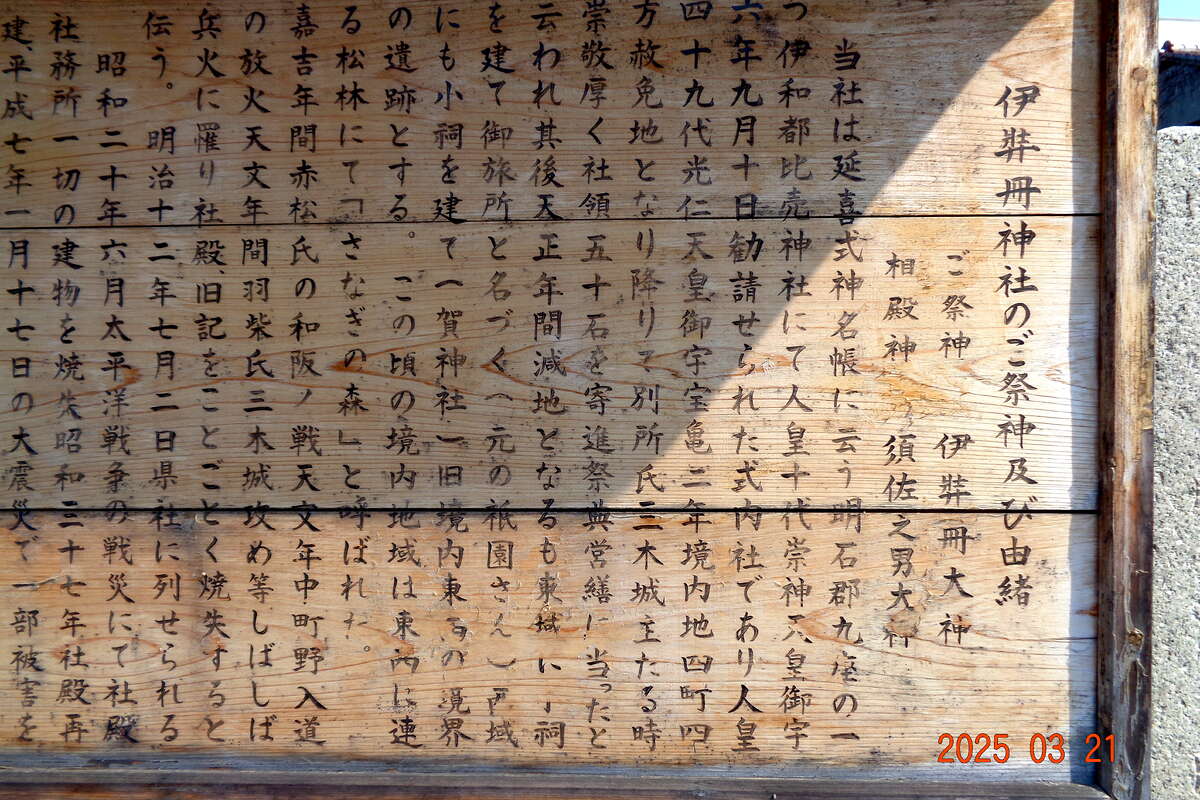 伊弉冊神社のご祭神及び由緒
ご祭神 伊弉冊大神
相殿神 須佐之男大神
当社は延喜式神名帳に云う明石郡九座の一
つ伊和都比売神社にて人皇十代崇神天皇御宇
六年九月十日勧請せられた式内社であり人皇
四十九代光仁天皇御宇宝亀二年境内地四町四
方赦免地となり降りて別所氏三木城主たる時
崇敬厚く社領五十石を寄進祭典営繕に当ったと
云われ其後天正年間減地となるも東域に小祠
を建て御旅所と名づく(元の祇園さん)西域
にも小祠を建て(賀神社)旧境内東西の境界
の遺跡とする。この頃の境内地域は東西に連
る松林にて「さなぎの森」と呼ばれた。
嘉吉年間赤松氏の和阪ノ戦天文年中町野入道
の放火天文年間羽柴氏三木城攻め等しばしば
兵火に罹り社殿、旧記をことごとく焼失すると
伝う。明治十二年七月二日県社に列せられる
昭和二十年六月太平洋戦争の戦災にて社殿
社務所一切の建物を焼失昭和三十七年社殿再
建、平成七年一月十七日の大震災で一部被害を
2025 03 21